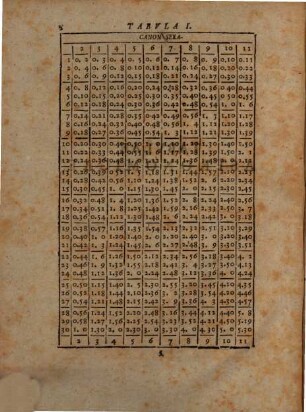 TABVLA I.
CANON SEXA-
2 3 4 5 6 7 8 9 10 11
1 0. 2 0. 3 0. 4 0. 5 0. 6 0. 7 0. 8 0. 9 0.10 0.11
2 0. 4 0. 6 0. 8 0.10 0.12 0.14 0.16 0.18 0.20 0.22
3 0. 6 0. 9 0.12 0.15 0.18 0.21 0.24 0.27 0.30 0.33
4 0. 8 0.12 0.16 0.20 0.24 0.28 0.32 0.36 0.40 0.44
5 0.10 0.15 0.20 0.25 0.30 0.35 0.40 0.45 0.50 0.55
6 0.12 0.18 0.24 0.30 0.36 0.42 0.48 0.54 1. 0 1. 6
7 0.14 0.21 0.28 0.35 0.42 0.49 0.56 1. 3 1.10 1.17
8 0.16 0.24 0.32 0.40 0.48 0.56 1. 4 1.12 1.20 1.28
9 0.18 0.27 0.36 0.45 0.54 1. 3 1.12 1.21 1.30 1.39
10 0.20 0.30 0.40 0.50 1. 0 1.10 1.20 1.30 1.40 1.50
15 0.30 0.45 1. 0 1.15 1.30 1.45 2. 0 2.15 2.30 2.45
16 0.32 0.48 1. 4 1.20 1.36 1.52 2. 8 2.24 2.40 2.56
17 0.34 0.51 1. 8 1.25 1.42 1.59 2.16 2.33 2.50 3. 7
18 0.36 0.54 1.12 1.30 1.48 2. 6 2.24 2.42 3. 0 3.18
19 0.38 0.57 1.16 1.35 1.54 2.13 2.32 2.51 3.10 3.29
20 0.40 1. 0 1.20 1.40 2. 0 2.20 2.40 3. 0 3.20 3.40
21 0.42 1. 3 1.24 1.45 2. 6 2.27 2.48 3. 9 3.30 3.51
22 0.44 1. 6 1.28 1.50 2.12 2.34 2.56 3.18 3.40 4. 2
23 0.46 1. 9 1.32 1.55 2.18 2.41 3. 4 3.27 3.50 4.13
24 0.48 1.12 1.36 2. 0 2.24 2.48 3.12 3.36 4. 0 4.24
25 0.50 1.15 1.40 2. 5 2.30 2.55 3.20 3.45 4.10 4.35
26 0.52 1.18 1.44 2.10 2.36 3. 2 3.28 3.54 4.20 4.46
27 0.54 1.21 1.48 2.15 2.42 3. 9 3.36 4. 3 4.30 4.57
28 0.56 1.24 1.52 2.20 2.48 3.16 3.44 4.12 4.40 5. 8
29 0.58 1.27 1.56 2.25 2.54 3.23 3.52 4.21 4.50 5.19
30 1. 0 1.30 2. 0 2.30 3. 0 3.30 4. 0 4.30 5. 0 5.30
2 3 4 5 6 7 8 9 10 11